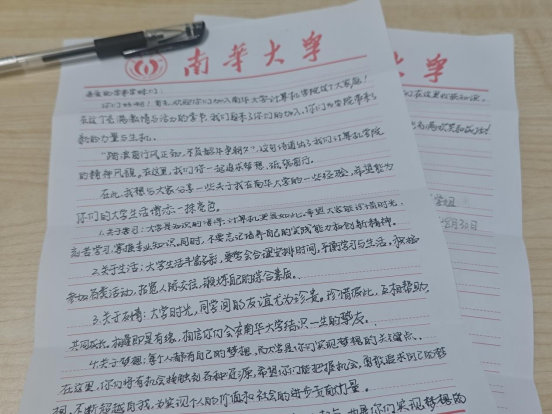 南华大学
亲爱的学弟学妹们:
你们好呀!首先,欢迎你们加入南华大学计算机学院这个大家庭!
在这个充满激情与活力的季节,我们迎来了你们的加入,你们为学院带来了
新的力量与生机。
的精神风貌。在这里,我们将一起追求梦想,砥砺前行。
在此,我想与大家分享一些关于我在南华大学的一些经验,希望能为
你们的大学生活增添一抹亮色。
1.关于学习:大学是知识的海洋,计算机更是如此,希望大家能珍惜时光,
刻苦学习,掌握专业知识。同时,不要忘记培养自己的实践能力和创新精神。
2.关于生活:大学生活丰富多彩,要学会合理安排时间,平衡学习与生活。积极
参加各类活动,拓宽人际交往,锻炼自己的综合素质。
3.关于友情:大学时光,同学间的友谊尤为珍贵,珍惜彼此,互相帮助,
共同成长。相遇即是有缘,相信你们会在南华大学结识一生的挚友。
4.关于梦想:每个人都有自己的梦想,而大学是你们实现梦想的关键点。
在这里,你们将有机会接触到各种资源,希望你们能把握机会,勇敢追求自己的梦
想,不断超越自我,为实现个人的价值和社会的进步贡献力量。
你们实现梦想的
大学
们在这里收获知识、
月30日